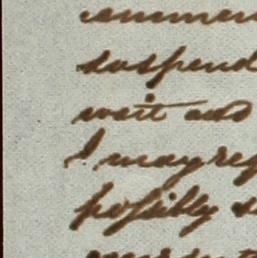 commen
suspend
wait and
I may reg
possibly s